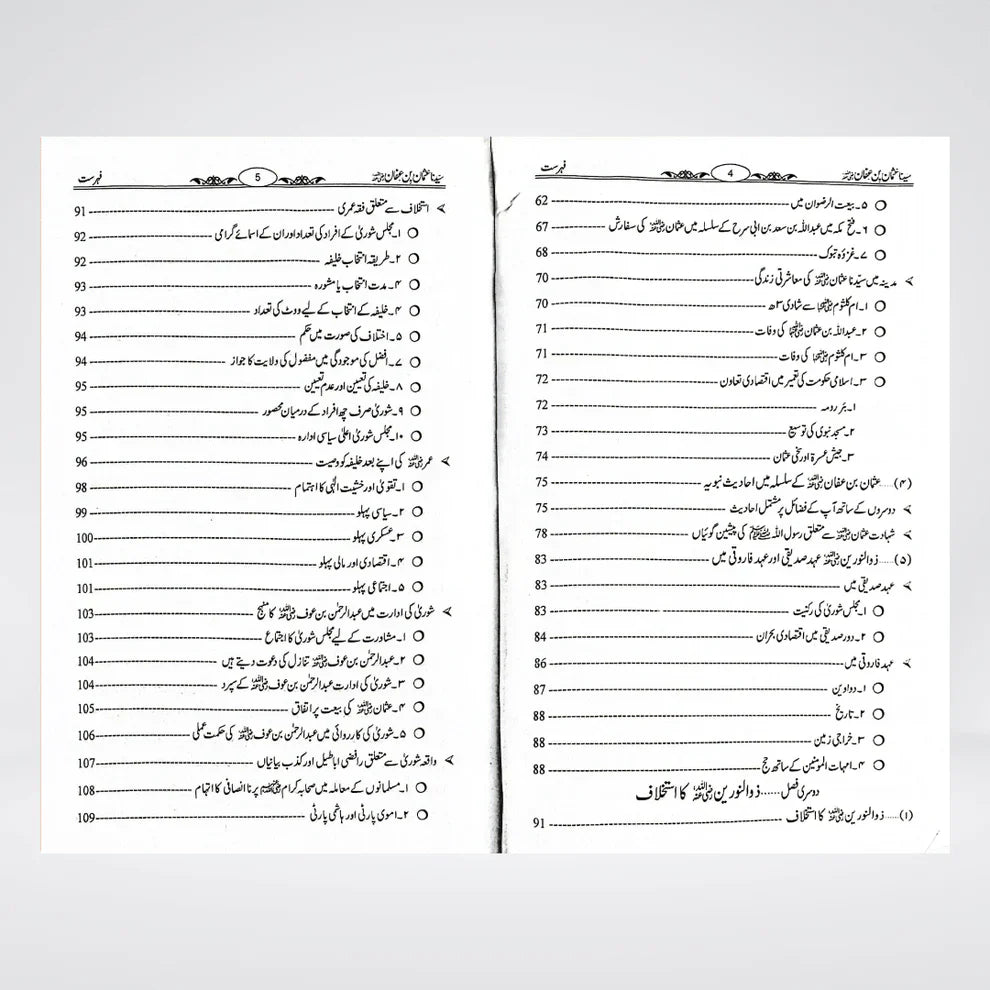 سیدنا عثمان بن عفان رضی اللہ عنہ 4 فہرست
○ ۵۔ بیعت الرضوان میں 62
○ ۶۔ فتح مکہ میں عبداللہ بن سعد بن ابی سرح کے سلسلہ میں عثمان رضی اللہ عنہ کی سفارش 67
○ ۷۔ غزوۂ تبوک 68
➢ مدینہ میں سیّدنا عثمان رضی اللہ عنہ کی معاشرتی زندگی 70
○ ۱۔ ام کلثوم رضی اللہ عنہا سے شادی ۳ھ 70
○ ۲۔ عبداللہ بن عثمان رضی اللہ عنہما کی وفات 71
○ ۳۔ ام کلثوم رضی اللہ عنہا کی وفات 71
○ ۳۔ اسلامی حکومت کی تعمیر میں اقتصادی تعاون 72
۱۔ بئر رومہ 72
۲۔ مسجد نبوی کی توسیع 73
۳۔ جیش عسرۃ اور سخی عثمان 74
(۴)..... عثمان بن عفان رضی اللہ عنہ کے سلسلہ میں احادیث نبویہ 75
➢ دوسروں کے ساتھ آپ کے فضائل پر مشتمل احادیث 75
➢ شہادت عثمان رضی اللہ عنہ سے متعلق رسول اللہ ﷺ کی پیشین گوئیاں 78
(۵)..... ذوالنورین رضی اللہ عنہ عہد صدیقی اور عہد فاروقی میں 83
➢ عہد صدیقی میں 83
○ ۱۔ مجلس شوریٰ کی رکنیت 83
○ ۲۔ دور صدیقی میں اقتصادی بحران 84
➢ عہد فاروقی میں 86
○ ۱۔ دواوین 87
○ ۲۔ تاریخ 88
○ ۳۔ خراجی زمین 88
○ ۴۔ امہات المؤمنین کے ساتھ حج 88
دوسری فصل...... ذوالنورین رضی اللہ عنہ کا استخلاف
(۱)..... ذوالنورین رضی اللہ عنہ کا استخلاف 91
سیّدنا عثمان بن عفان رضی اللہ عنہ 5 فہرست
➢ استخلاف سے متعلق فقہ عمری 91
○ ۱۔ مجلس شوریٰ کے افراد کی تعداد اور ان کے اسمائے گرامی 92
○ ۲۔ طریقہ انتخاب خلیفہ 92
○ ۴۔ مدت انتخاب یا مشورہ 93
○ ۴۔ خلیفہ کے انتخاب کے لیے ووٹ کی تعداد 93
○ ۵۔ اختلاف کی صورت میں حکم 94
○ ۷۔ افضل کی موجودگی میں مفضول کی ولایت کا جواز 94
○ ۸۔ خلیفہ کی تعیین اور عدم تعیین 95
○ ۹۔ شوریٰ صرف چھ افراد کے درمیان محصور 95
○ ۱۰۔ مجلس شوریٰ اعلیٰ سیاسی ادارہ 95
➢ عمر رضی اللہ عنہ کی اپنے بعد خلیفہ کو وصیت 96
○ ۱۔ تقویٰ اور خشیت الٰہی کا اہتمام 98
○ ۲۔ سیاسی پہلو 99
○ ۳۔ عسکری پہلو 100
○ ۴۔ اقتصادی اور مالی پہلو 101
○ ۵۔ اجتماعی پہلو 101
➢ شوریٰ کی ادارت میں عبدالرحمٰن بن عوف رضی اللہ عنہ کا منہج 103
○ ۱۔ مشاورت کے لیے مجلس شوریٰ کا اجتماع 103
○ ۲۔ عبدالرحمٰن بن عوف رضی اللہ عنہ تنازل کی دعوت دیتے ہیں 104
○ ۳۔ شوریٰ کی ادارت عبدالرحمٰن بن عوف رضی اللہ عنہ کے سپرد 104
○ ۴۔ عثمان رضی اللہ عنہ کی بیعت پر اتفاق 105
○ ۵۔ شوریٰ کی کارروائی میں عبدالرحمٰن بن عوف رضی اللہ عنہ کی حکمت عملی 106
➢ واقعہ شوریٰ سے متعلق رافضی اباطیل اور کذب بیانیاں 107
○ ۱۔ مسلمانوں کے معاملہ میں صحابہ کرام رضی اللہ عنہم پر ناانصافی کا اتہام 108
○ ۲۔ اموی پارٹی اور ہاشمی پارٹی 109